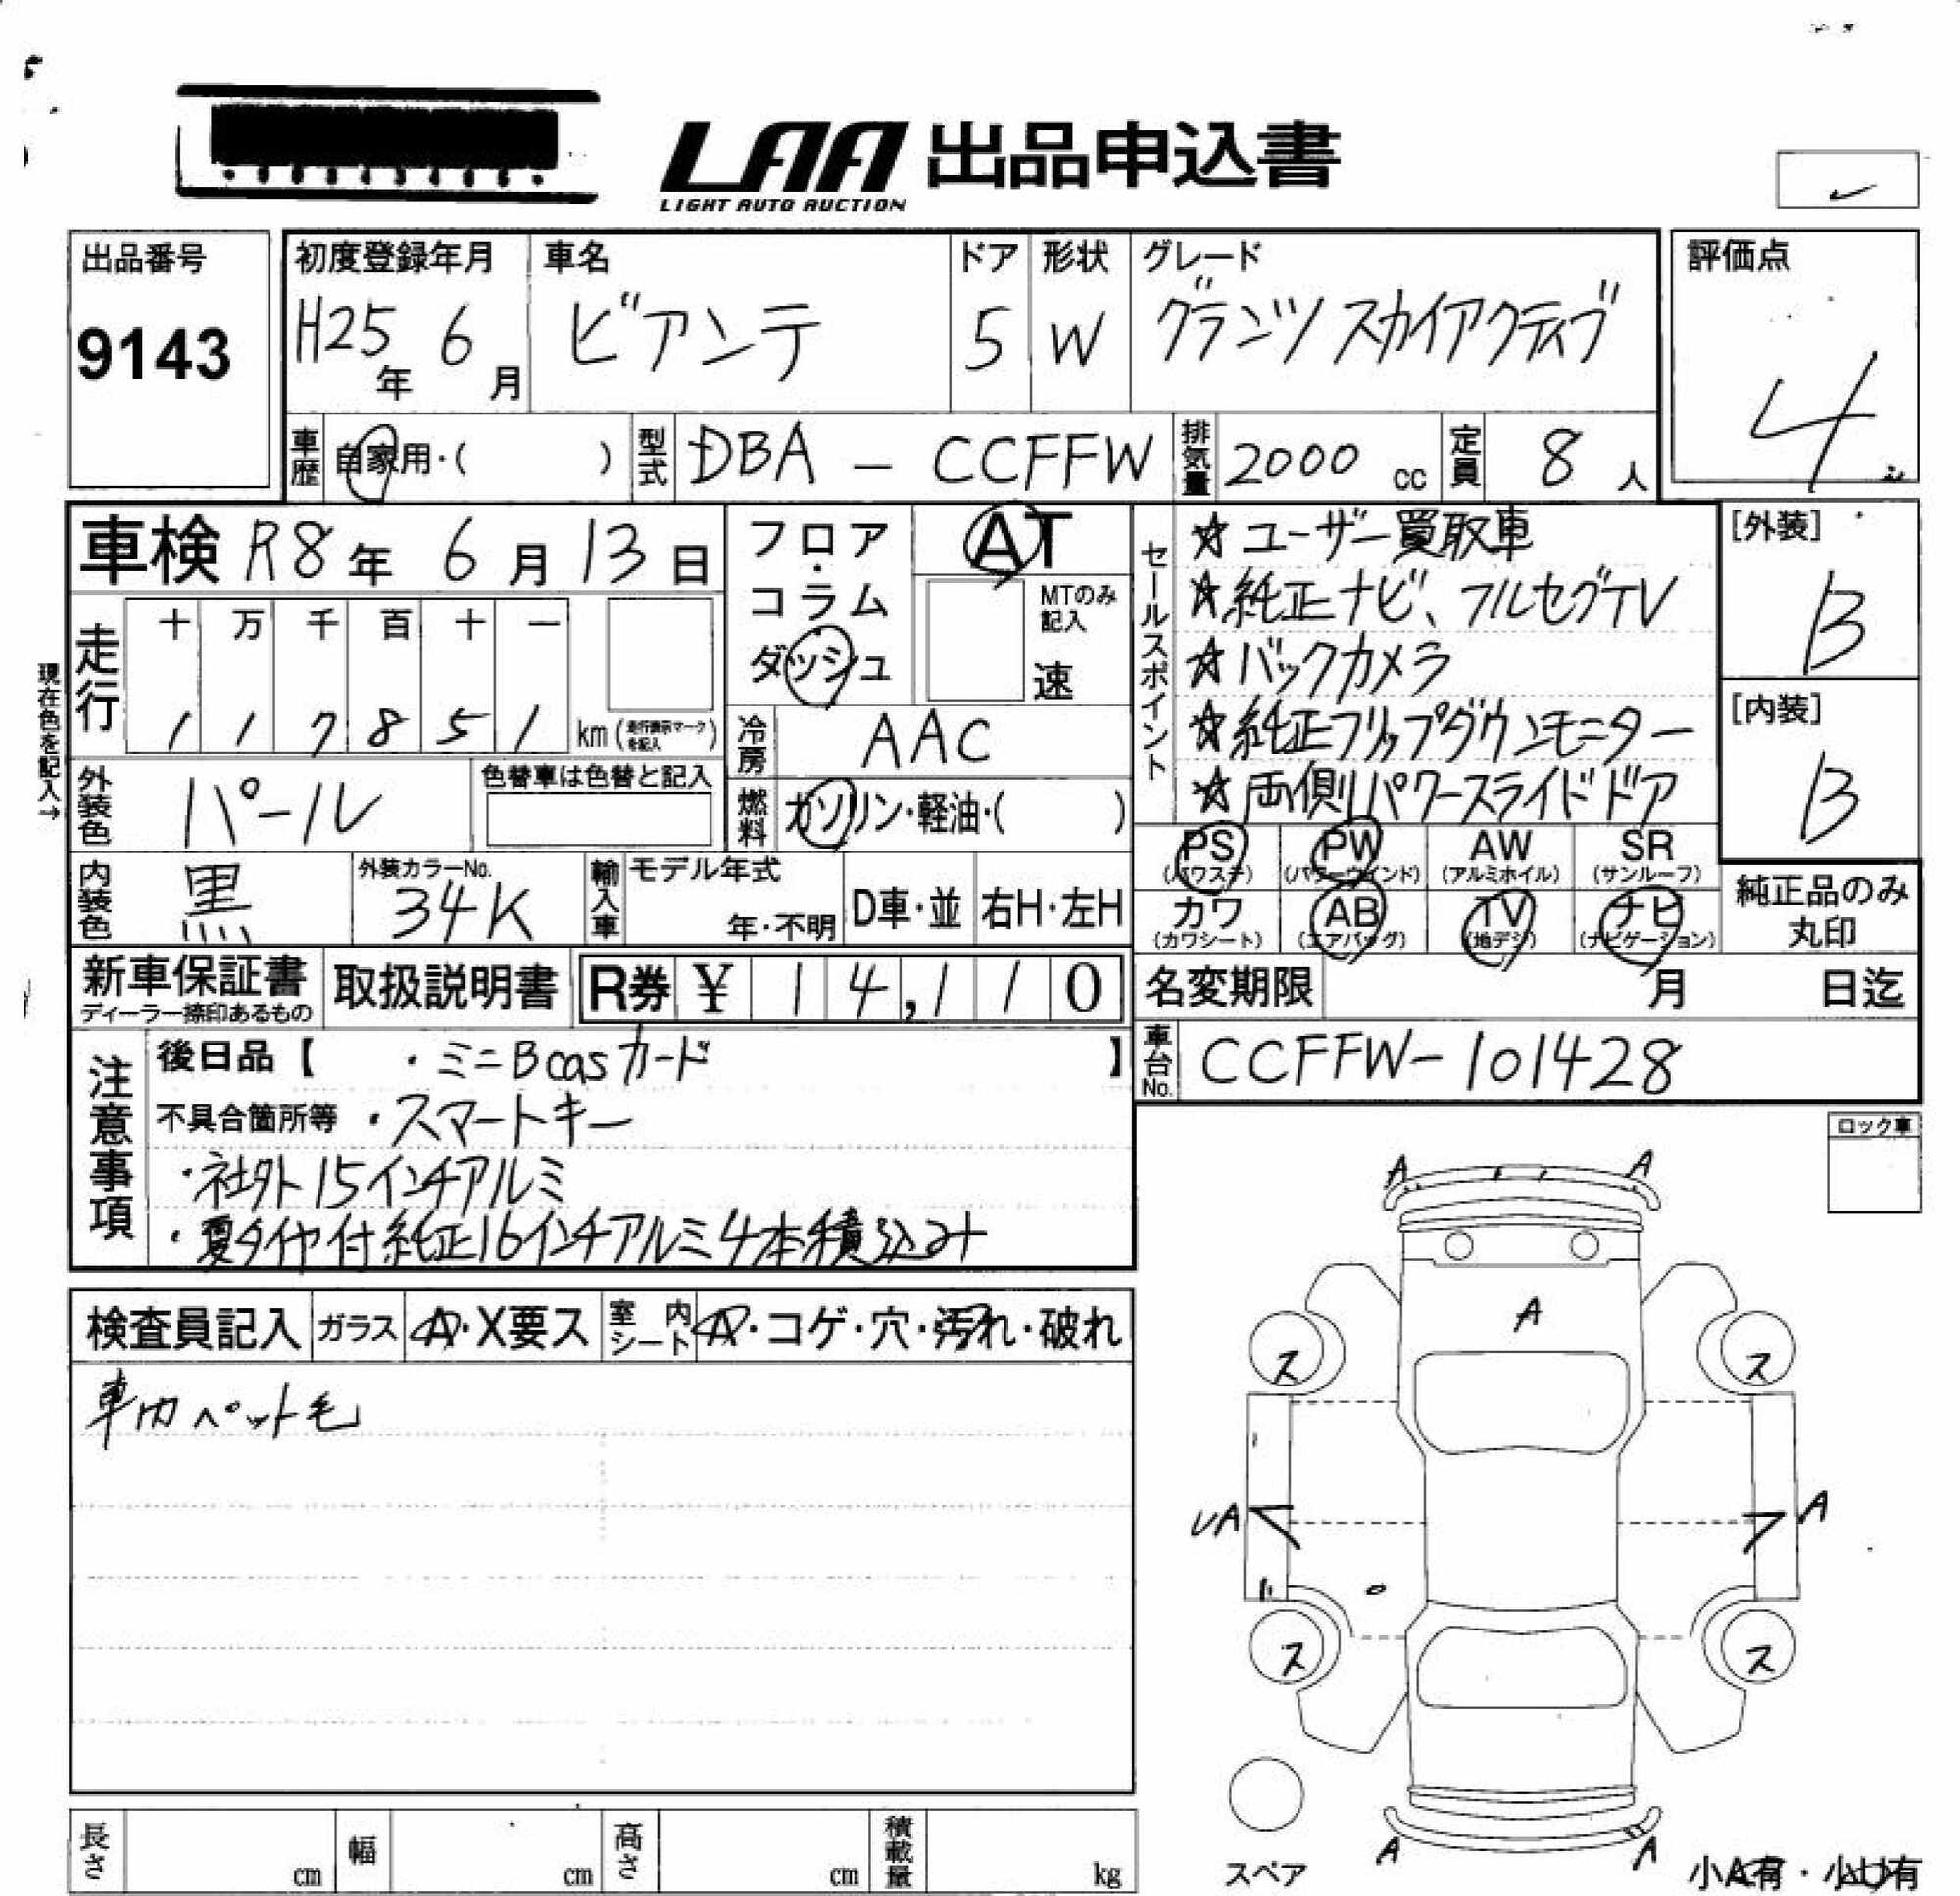 LAA 出品申込書
LIGHT AUTO AUCTION
出品番号
9143
初度登録年月
H25年 6月
車名
ビアンテ
ドア
5
形状
W
グレード
グランツ スカイアクティブ
評価点
4
車歴
自家用・( )
型式
DBA - CCFFW
排気量
2000 cc
定員
8 人
車検 R8年 6月 13日
走行
十 万 千 百 十 一
1 1 7 8 5 1 km (走行表示マークを記入)
現在色を記入→
外装色
パール
色替車は色替と記入
内装色
黒
外装カラーNo.
34K
フロア・
コラム・
ダッシュ
AT
MTのみ
記入
速
冷房
AAC
燃料
ガソリン・軽油・( )
輸入車
モデル年式
年・不明
D車・並
右H・左H
セールスポイント
☆ユーザー買取車
☆純正ナビ、フルセグTV
☆バックカメラ
☆純正フリップダウンモニター
☆両側パワースライドドア
[外装]
B
[内装]
B
PS
(パワステ)
PW
(パワーウインド)
AW
(アルミホイル)
SR
(サンルーフ)
カワ
(カワシート)
AB
(エアバッグ)
TV
(地デジ)
ナビ
(ナビゲーション)
純正品のみ
丸印
新車保証書
ディーラー捺印あるもの
取扱説明書
R券 ¥ 14,110
名変期限 月 日迄
車台No.
CCFFW-101428
注意事項
後日品【 ・ミニBcasカード 】
不具合箇所等 ・スマートキー
・社外15インチアルミ
・夏タイヤ付純正16インチアルミ4本積込み
ロック車
検査員記入
ガラス
A・X要ス
室内シート
A・コゲ・穴・汚れ・破れ
車内ペット毛
A A
A
ス ス
UA A
ス ス
A A
スペア
小A有・小U有
長さ cm
幅 cm
高さ cm
積載量 kg